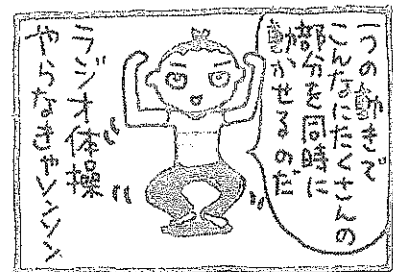 一つの動きで
こんなにたくさんの
部分を同時に
動かせるのだ
ラジオ体操
やらなきゃソンソン